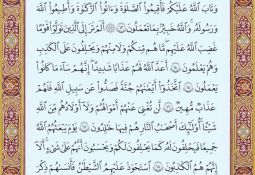 وَتَابَ ٱللَّهُ عَلَيْكُمْ فَأَقِيمُوا۟ ٱلصَّلَوٰةَ وَءَاتُوا۟ ٱلزَّكَوٰةَ وَأَطِيعُوا۟ ٱللَّهَ
وَرَسُولَهُۥ ۚ وَٱللَّهُ خَبِيرٌۢ بِمَا تَعْمَلُونَ ١٣ أَلَمْ تَرَ إِلَى ٱلَّذِينَ تَوَلَّوْا۟ قَوْمًا
غَضِبَ ٱللَّهُ عَلَيْهِم مَّا هُم مِّنكُمْ وَلَا مِنْهُمْ وَيَحْلِفُونَ عَلَى ٱلْكَذِبِ
وَهُمْ يَعْلَمُونَ ١٤ أَعَدَّ ٱللَّهُ لَهُمْ عَذَابًا شَدِيدًا ۖ إِنَّهُمْ سَآءَ مَا كَانُوا۟
يَعْمَلُونَ ١٥ ٱتَّخَذُوٓا۟ أَيْمَٰنَهُمْ جُنَّةً فَصَدُّوا۟ عَن سَبِيلِ ٱللَّهِ فَلَهُمْ
عَذَابٌ مُّهِينٌ ١٦ لَّن تُغْنِىَ عَنْهُمْ أَمْوَٰلُهُمْ وَلَآ أَوْلَٰدُهُم مِّنَ ٱللَّهِ
شَيْـًٔا ۚ أُو۟لَٰٓئِكَ أَصْحَٰبُ ٱلنَّارِ ۖ هُمْ فِيهَا خَٰلِدُونَ ١٧ يَوْمَ يَبْعَثُهُمُ ٱللَّهُ
جَمِيعًا فَيَحْلِفُونَ لَهُۥ كَمَا يَحْلِفُونَ لَكُمْ ۖ وَيَحْسَبُونَ أَنَّهُمْ عَلَىٰ شَىْءٍ ۚ أَلَآ
إِنَّهُمْ هُمُ ٱلْكَٰذِبُونَ ١٨ ٱسْتَحْوَذَ عَلَيْهِمُ ٱلشَّيْطَٰنُ فَأَنسَىٰهُمْ ذِكْرَ